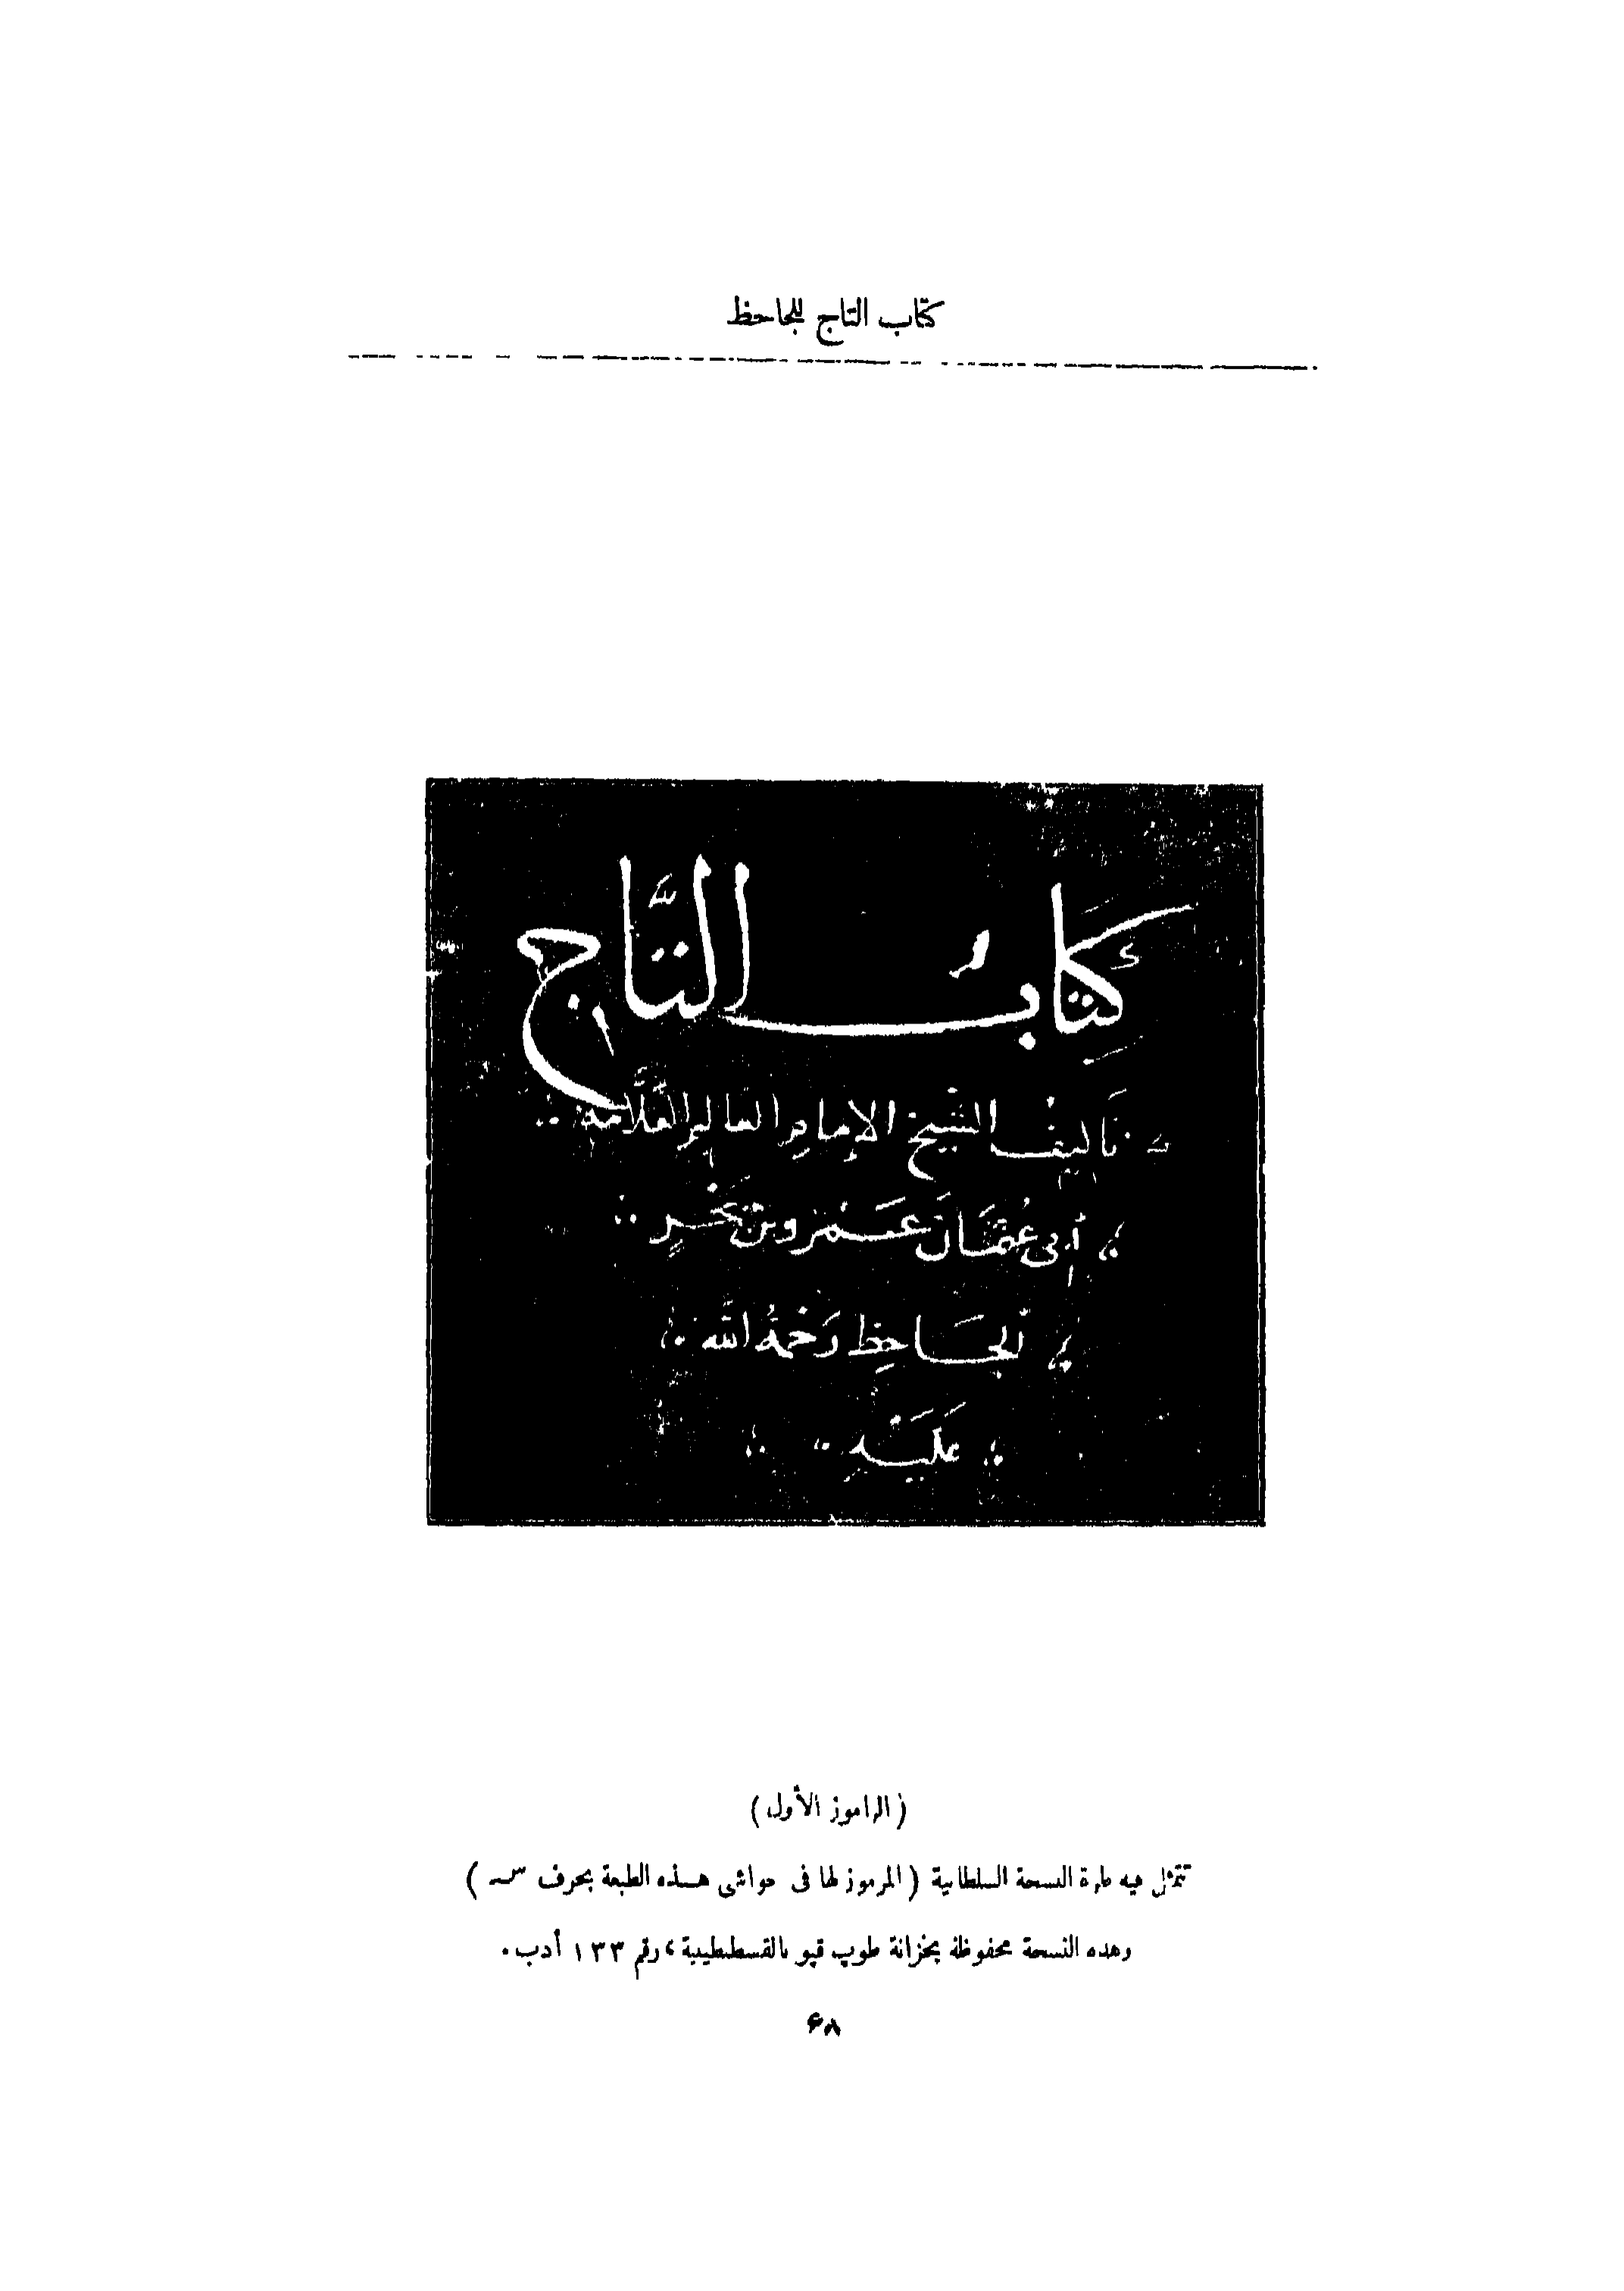 كتاب التاج للجاحظ
كِتَابُ التَّاجِ
تَأليفُ الشَّيْخِ الإِمامِ العالِمِ العَلَّامَةِ
أَبِى عُثمَانَ عَمْرو بْنِ بَحْرٍ
الجَاحِظِ رَحْمَةُ اللَّه
عَلَيْهِ
( الراموز الأول )
تتمثل فيه طرة النسخة السلطانية ( المرموز لها فى حواشى هـذه الطبعة بحرف سـ )
وهذه النسخة محفوظة بخزانة طوپ قپو بالقسطنطينية ، ورقم ١٣٣ أدب .
۶۸